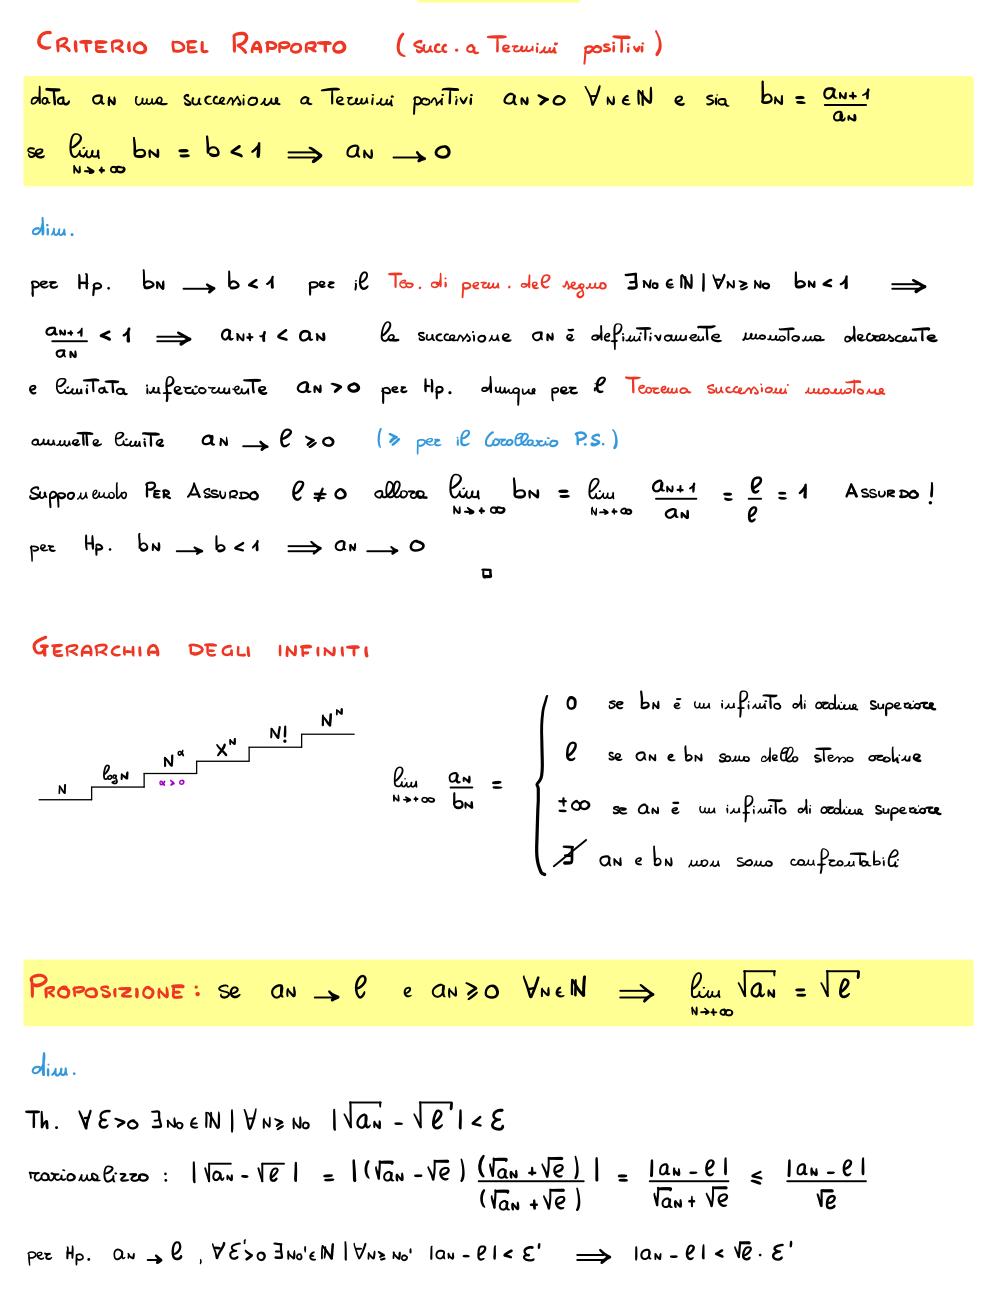 CRITERIO DEL RAPPORTO (succ. a Termini positivi)
data aN una successione a Termini positivi aN > 0 ∀N∈ℕ e sia bN = aN+1/aN
se lim N→+∞ bN = b < 1 ⟹ aN → 0
dim.
per Hp. bN → b < 1 per il Teo. di perm. del segno ∃N0∈ℕ | ∀N≥N0 bN < 1 ⟹
aN+1/aN < 1 ⟹ aN+1 < aN la successione aN è definitivamente monotona decrescente
e limitata inferiormente aN > 0 per Hp. dunque per l Teorema successioni monotone
ammette limite aN → l ≥ 0 (≥ per il Corollario P.S.)
Supponendo PER ASSURDO l ≠ 0 allora lim N→+∞ bN = lim N→+∞ aN+1/aN = l/l = 1 ASSURDO!
per Hp. bN → b < 1 ⟹ aN → 0
□
GERARCHIA DEGLI INFINITI
N logN N^α α>0 X^N N! N^N
lim N→+∞ aN/bN =
0 se bN è un infinito di ordine superiore
l se aN e bN sono dello stesso ordine
±∞ se aN è un infinito di ordine superiore
∄ aN e bN non sono confrontabili
PROPOSIZIONE: se aN → l e aN ≥ 0 ∀N∈ℕ ⟹ lim N→+∞ √aN = √l
dim.
Th. ∀ε>0 ∃N0∈ℕ | ∀N≥N0 |√aN - √l| < ε
razionalizzo: |√aN - √l| = |(√aN - √l) (√aN + √l)/(√aN + √l)| = |aN - l|/√aN + √l ≤ |aN - l|/√l
per Hp. aN → l, ∀ε'>0 ∃N0'∈ℕ | ∀N≥N0' |aN - l| < ε' ⟹ |aN - l| < √l · ε'